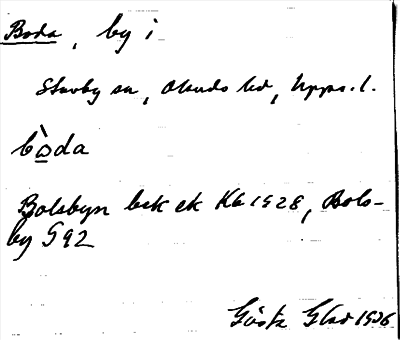 Boda, by i
Stavby sn, Olands hd, Upps. l.
bòda
Bolsbyn bek ek Kb 1928, Bols-
by S 92
Gösta Glad 1936